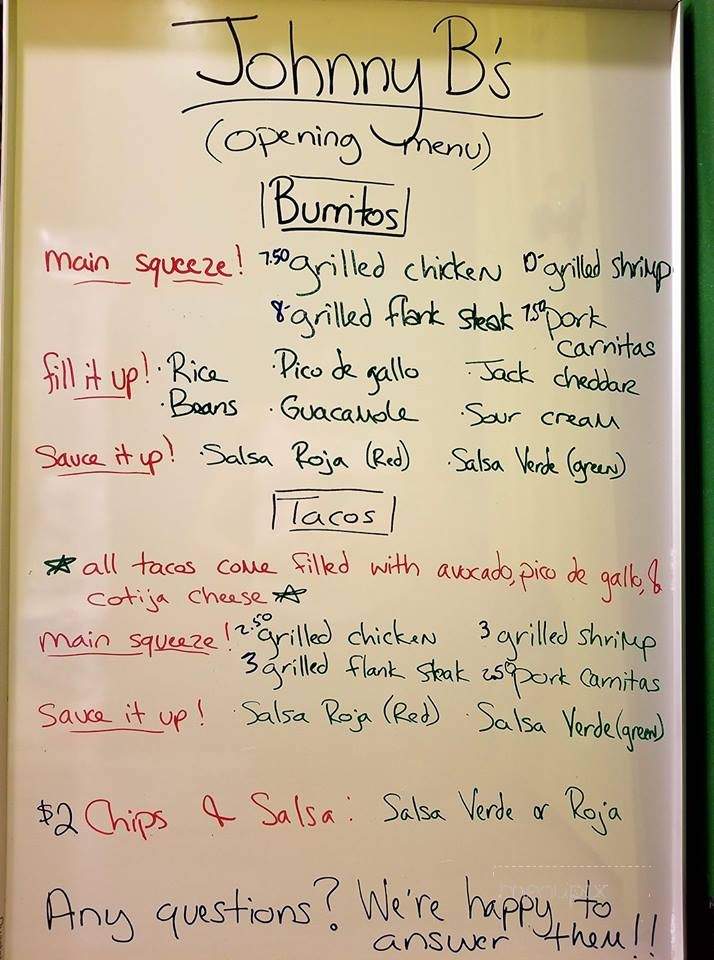 Johnny B's
(opening menu)
Burritos
main squeeze! 7.50 grilled chicken 10- grilled shrimp
8- grilled flank steak 7.50 pork carnitas
fill it up! · Rice · Pico de gallo · Jack cheddar
· Beans · Guacamole · Sour cream
Sauce it up! · Salsa Roja (Red) · Salsa Verde (green)
Tacos
☆ all tacos come filled with avocado, pico de gallo, &
cotija cheese ☆
main squeeze! 2.50 grilled chicken 3 grilled shrimp
3 grilled flank steak 2.50 pork carnitas
Sauce it up! · Salsa Roja (Red) · Salsa Verde (green)
$2 Chips & Salsa: Salsa Verde or Roja
Any questions? We're happy to
answer them!!